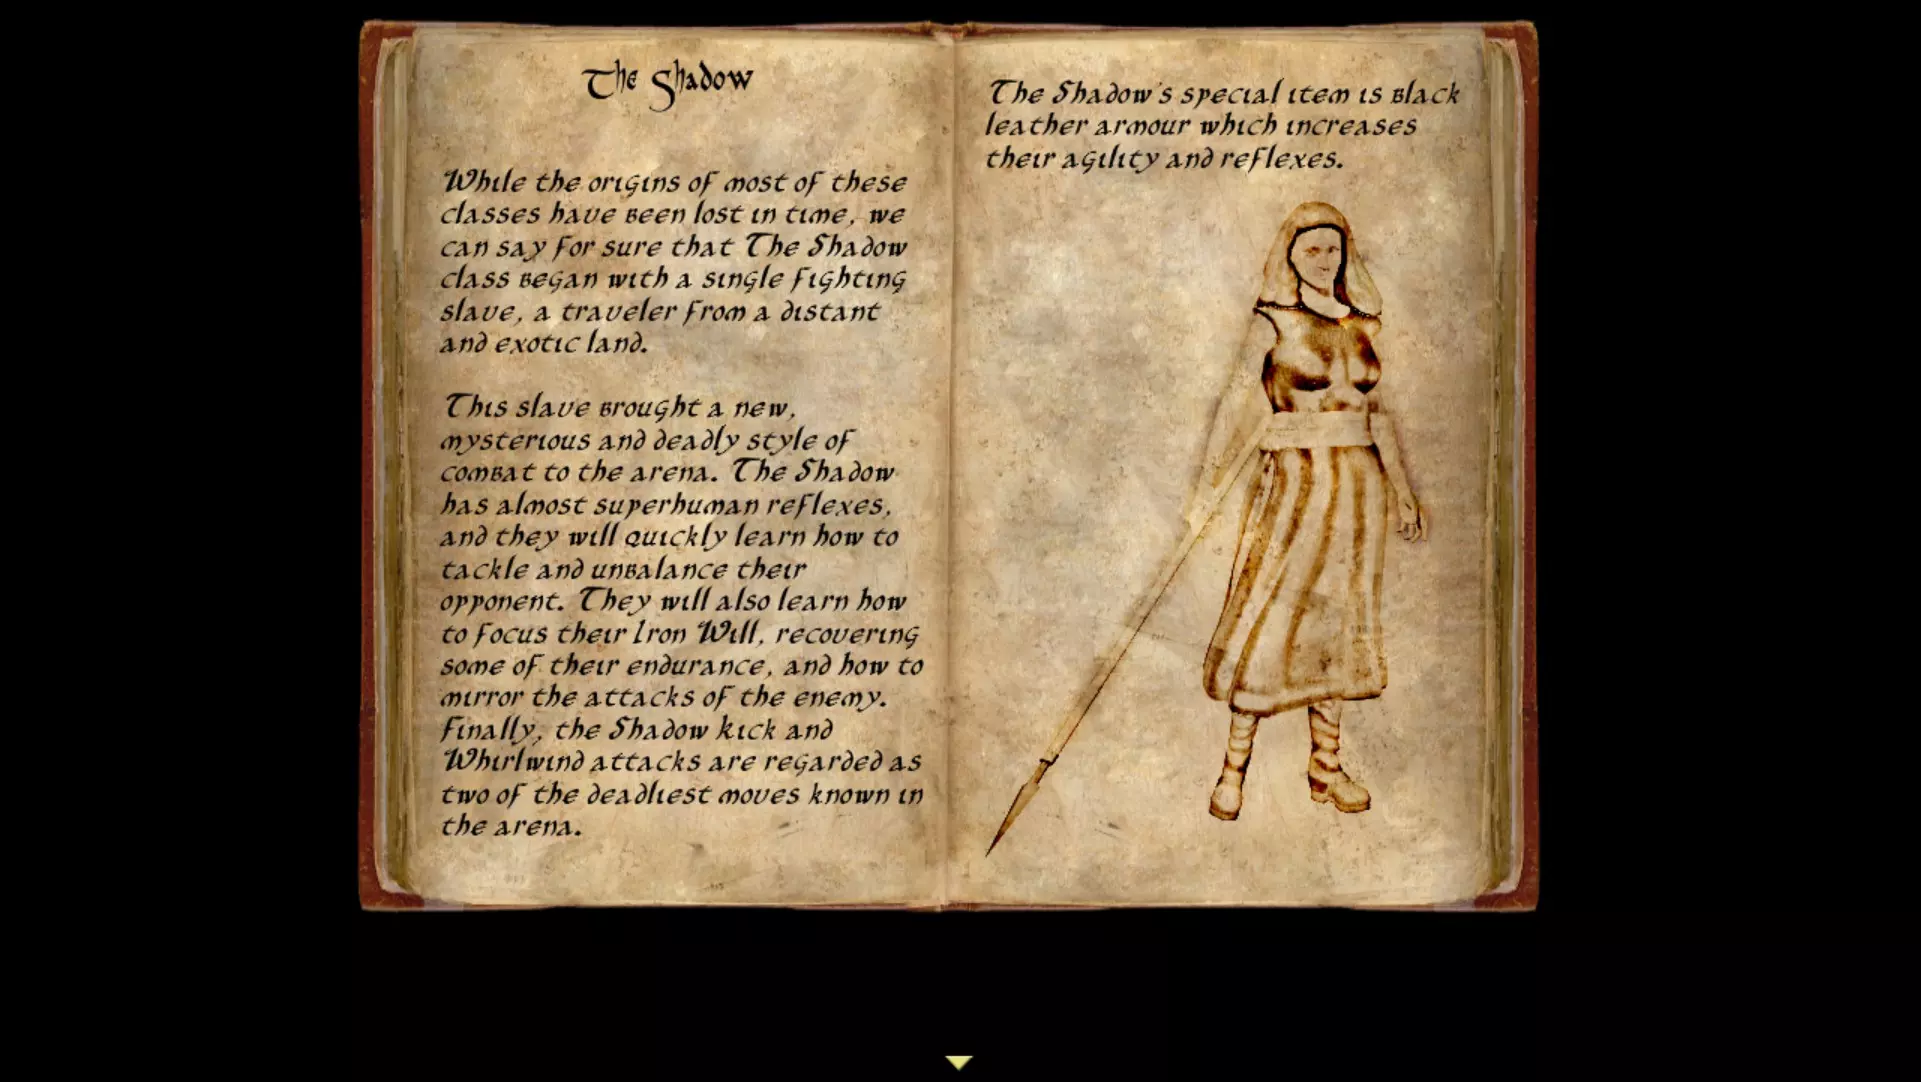 The Shadow
While the origins of most of these
classes have been lost in time, we
can say for sure that The Shadow
class began with a single fighting
slave, a traveler from a distant
and exotic land.
This slave brought a new,
mysterious and deadly style of
combat to the arena. The Shadow
has almost superhuman reflexes,
and they will quickly learn how to
tackle and unbalance their
opponent. They will also learn how
to focus their Iron Will, recovering
some of their endurance, and how to
mirror the attacks of the enemy.
Finally, the Shadow kick and
Whirlwind attacks are regarded as
two of the deadliest moves known in
the arena.
The Shadow's special item is black
leather armour which increases
their agility and reflexes.